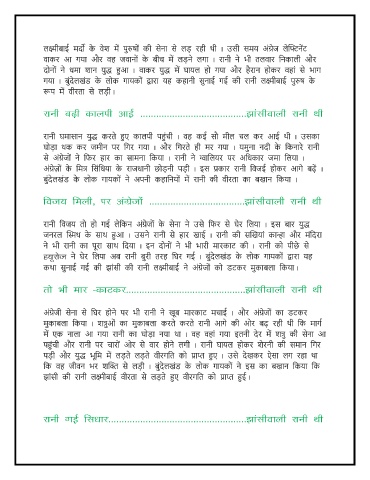 लक्ष्मीबाई मर्दों के वेश में पुरुषों की सेना से लड़ रही थी । उसी समय अंग्रेज लेफ्टिनेंट
वाकर आ गया और वह जवानों के बीच में लड़ने लगा । रानी ने भी तलवार निकाली और
दोनों ने धमा शान युद्ध हुआ । वाकर युद्ध में घायल हो गया और हैरान होकर वहां से भाग
गया । बुंदेलखंड के लोक गायकों द्वारा यह कहानी सुनाई गई की रानी लक्ष्मीबाई पुरुष के
रूप में वीरता से लड़ी ।
रानी बढ़ी कालपी आई ........................................झांसीवाली रानी थी
रानी घमासान युद्ध करते हुए कालपी पहुंची । वह कई सो मील चल कर आई थी । उसका
घोड़ा थक कर जमीन पर गिर गया । और गिरते ही मर गया । यमुना नदी के किनारे रानी
से अंग्रेजों ने फिर हार का सामना किया । रानी ने ग्वालियर पर अधिकार जमा लिया ।
अंग्रेज़ों के मित्र सिंधिया के राजधानी छोड़नी पड़ी । इस प्रकार रानी विजई होकर आगे बढ़ें ।
बुंदेलखंड के लोक गायकों ने अपनी कहानियों में रानी की वीरता का बखान किया ।
विजय मिली, पर अंग्रेजों ....................................झांसीवाली रानी थी
रानी विजय तो हो गई लेकिन अंग्रेजों के सेना ने उसे फिर से घेर लिया । इस बार युद्ध
जनरल स्मिथ के साथ हुआ । उसने रानी से हार खाई । रानी की सखियां कान्हा और मंदिरा
ने भी रानी का पूरा साथ दिया । इन दोनों ने भी भारी मारकाट की । रानी को पीछे से
ह्यूरोज ने घेर लिया अब रानी बुरी तरह घिर गई । बुंदेलखंड के लोक गायकों द्वारा यह
कथा सुनाई गई की झांसी की रानी लक्ष्मीबाई ने अंग्रेजों को डटकर मुकाबला किया।
तो भी मार -काटकर.............................................झांसीवाली रानी थी
अंग्रेजी सेना से घिर होने पर भी रानी ने खूब मारकाट मचाई । और अंग्रेजों का डटकर
मुकाबला किया । शत्रुओं का मुकाबला करते करते रानी आगे की ओर बढ़ रही थी कि मार्ग
में एक नाला आ गया रानी का घोड़ा नया था । वह वहां गया इतनी देर में शत्रु की सेना आ
पहुंची और रानी पर चारों ओर से वार होने लगी । रानी घायल होकर शेरनी की समान गिर
पड़ी और युद्ध भूमि में लड़ते लड़ते वीरगति को प्राप्त हुए । उसे देखकर ऐसा लग रहा था
कि वह जीवन भर शक्ति से लड़ी । बुंदेलखंड के लोक गायकों ने इस का बखान किया कि
झांसी की रानी लक्ष्मीबाई वीरता से लडते हुए वीरगति को प्राप्त हुई।
रानी गई सिधार....................................................झांसीवाली रानी थी